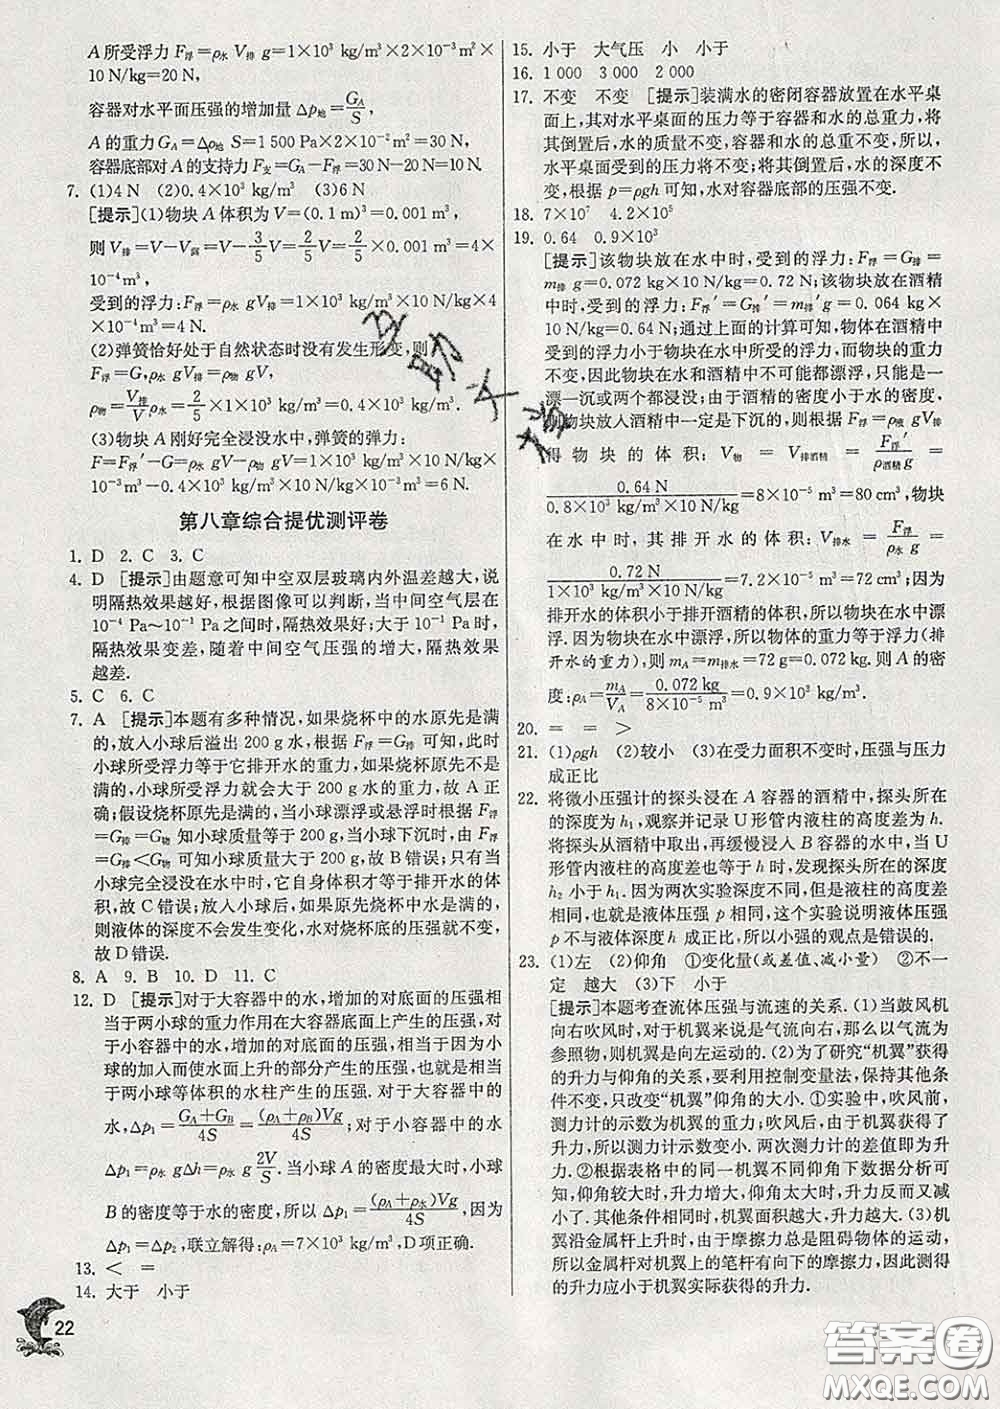 A 所受浮力 F浮=ρ水 V排 g=1×10³ kg/m³×2×10⁻³m²×
10 N/kg=20 N,
容器对水平面压强的增加量 Δp地=G_A/S,
A 的重力 G_A=Δp地 S=1 500 Pa×2×10⁻²m²=30 N,
容器底部对 A 的支持力 F支=G_A−F浮=30 N−20 N=10 N.
7. (1)4 N (2)0.4×10³ kg/m³ (3)6 N
[提示](1)物块 A 体积为 V=(0.1 m)³=0.001 m³,
则 V排=V−V露=V−3/5V=2/5V=2/5×0.001 m³=4×
10⁻⁴m³;
受到的浮力:F浮=ρ水 gV排=1×10³ kg/m³×10 N/kg×4
×10⁻⁴m³=4 N.
(2)弹簧恰好处于自然状态时没有发生形变,则
F浮=G,ρ水 gV排=ρ物 gV,
ρ物=V排/V ρ水=2/5×1×10³ kg/m³=0.4×10³ kg/m³.
(3)物块 A 刚好完全浸没水中,弹簧的弹力:
F=F浮′−G=ρ水 gV−ρ物 gV=1×10³ kg/m³×10 N/kg×
10⁻³m³−0.4×10³ kg/m³×10 N/kg×10⁻³m³=6 N.
第八章综合提优测评卷
1. D 2. C 3. C
4. D [提示]由题意可知中空双层玻璃内外温差越大,说
明隔热效果越好,根据图像可以判断,当中间空气层在
10⁻⁴ Pa~10⁻¹ Pa之间时,隔热效果好;大于10⁻¹ Pa时,
隔热效果变差,随着中间空气压强的增大,隔热效果
越差.
5. C 6. C
7. A [提示]本题有多种情况,如果烧杯中的水原先是满
的,放入小球后溢出 200 g 水,根据 F浮=G排 可知,此时
小球所受浮力等于它排开水的重力,如果烧杯原先不是
满的,小球所受浮力就会大于 200 g 水的重力,故 A 正
确;假设烧杯原先是满的,当小球漂浮或悬浮时根据 F浮
=G排=G物 知小球质量等于200 g,当小球下沉时,由 F浮
=G排<G物 可知小球质量大于 200 g,故 B 错误;只有当
小球完全浸没在水中时,它自身体积才等于排开水的体
积,故 C 错误;放入小球后,如果原先烧杯中的水是满的,
则液体的深度不会发生变化,水对烧杯底的压强就不变,
故 D 错误.
8. A 9. B 10. D 11. C
12. D [提示]对于大容器中的水,增加的对底面的压强相
当于两小球的重力作用在大容器底面上产生的压强,对
于小容器中的水,增加的对底面的压强,相当于因为小
球的加入而使水面上升的部分产生的压强,也就是相当
于两小球等体积的水柱产生的压强.对于大容器中的
水,Δp₁=(G_A+G_B)/4S=(ρ_A+ρ_B)Vg/4S;对于小容器中的水
Δp₁=ρ水 gΔh=ρ水 g 2V/S.当小球 A 的密度最大时,小球
B 的密度等于水的密度,所以 Δp₁=(ρ_A+ρ水)Vg/4S,因为
Δp₁=Δp₂,联立解得:ρ_A=7×10³ kg/m³,D 项正确.
13. < =
14. 大于 小于
15. 小于 大气压 小 小于
16. 1 000 3 000 2 000
17. 不变 不变 [提示]装满水的密闭容器放置在水平桌
面上,其对水平桌面的压力等于容器和水的总重力,将
其倒置后,水的质量不变,容器和水的总重不变,所以,
水平桌面受到的压力将不变;将其倒置后,水的深度不
变,根据 p=ρgh 可知,水对容器底部的压强不变.
18. 7×10⁷ 4.2×10⁵
19. 0.64 0.9×10³
[提示]该物块放在水中时,受到的浮力:F浮=G排=
m排 g=0.072 kg×10 N/kg=0.72 N;该物块放在酒精
中时,受到的浮力:F浮′=G排′=m排′g=0.064 kg×
10 N/kg=0.64 N;通过上面的计算可知,物体在酒精中
受到的浮力小于物块在水中所受的浮力,而物块的重力
不变,因此物块在水和酒精中不可能都漂浮,只能是一
漂一沉或两个都浸没;由于酒精的密度小于水的密度,
则物块放入酒精中一定是下沉的,则根据 F浮=ρgV排
得物块的体积:V物=V排酒精=F浮′/(ρ酒精 g)=
0.64 N/(0.8×10³ kg/m³×10 N/kg)=8×10⁻⁵ m³=80 cm³,物块
在水中时,其排开水的体积:V排水=F浮/(ρ水 g)=
0.72 N/(1×10³ kg/m³×10 N/kg)=7.2×10⁻⁵ m³;因为
排开水的体积小于排开酒精的体积,所以物块在水中漂
浮.因为物块在水中漂浮,所以物体的重力等于浮力(排
开水的重力),则 m_A=m排水=72 g=0.072 kg.则 A 的密
度:ρ_A=m_A/V_A=0.072 kg/(8×10⁻⁵ m³)=0.9×10³ kg/m³.
20. = = >
21. (1)ρgh (2)较小 (3)在受力面积不变时,压强与压力
成正比
22. 将微小压强计的探头浸在 A 容器的酒精中,探头所在
的深度为 h₁,观察并记录 U 形管内液柱的高度差为 h.
将探头从酒精中取出,再缓慢浸入 B 容器的水中,当 U
形管内液柱的高度差也等于 h 时,发现探头所在的深度
h₂ 小于 h₁.因为两次实验深度不同,但是液柱的高度差
相同,也就是液体压强 p 相同,这个实验说明液体压强
p 不与液体深度 h 成正比,所以小强的观点是错误的.
23. (1)左 (2)仰角 ①变化量(或差值、减小量) ②不一
定 越大 (3)下 小于
[提示]本题考查流体压强与流速的关系.(1)当鼓风机
向右吹风时,对于机翼来说是气流向右,那么以气流为
参照物,则机翼是向左运动的.(2)为了研究“机翼”获得
的升力与仰角的关系,要利用控制变量法,保持其他条
件不变,只改变“机翼”仰角的大小.①实验中,吹风前,
测力计的示数为机翼的重力;吹风后,由于机翼获得了
升力,所以测力计示数变小.两次测力计的差值即为升
力.②根据表格中的同一机翼不同仰角下数据分析可
知,仰角较大时,升力增大,仰角太大时,升力反而又减
小了.其他条件相同时,机翼面积越大,升力越大.(3)机
翼沿金属杆上升时,由于摩擦力总是阻碍物体的运动,
所以金属杆对机翼上的笔杆有向下的摩擦力,机翼增加
的升力应小于机翼实际获得的升力.
22
互助文档
答案圈
MXQE.COM